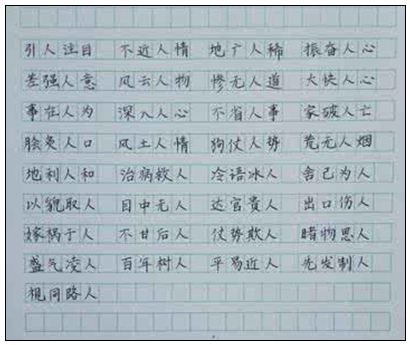 引人注目 不近人情 地广人稀 振奋人心
差强人意 风云人物 惨无人道 大快人心
事在人为 深入人心 不省人事 家破人亡
脍炙人口 风土人情 狗仗人势 荒无人烟
地利人和 治病救人 冷语冰人 舍己为人
以貌取人 目中无人 达官贵人 出口伤人
嫁祸于人 不甘后人 仗势欺人 睹物思人
盛气凌人 百年树人 平易近人 先发制人
视同路人